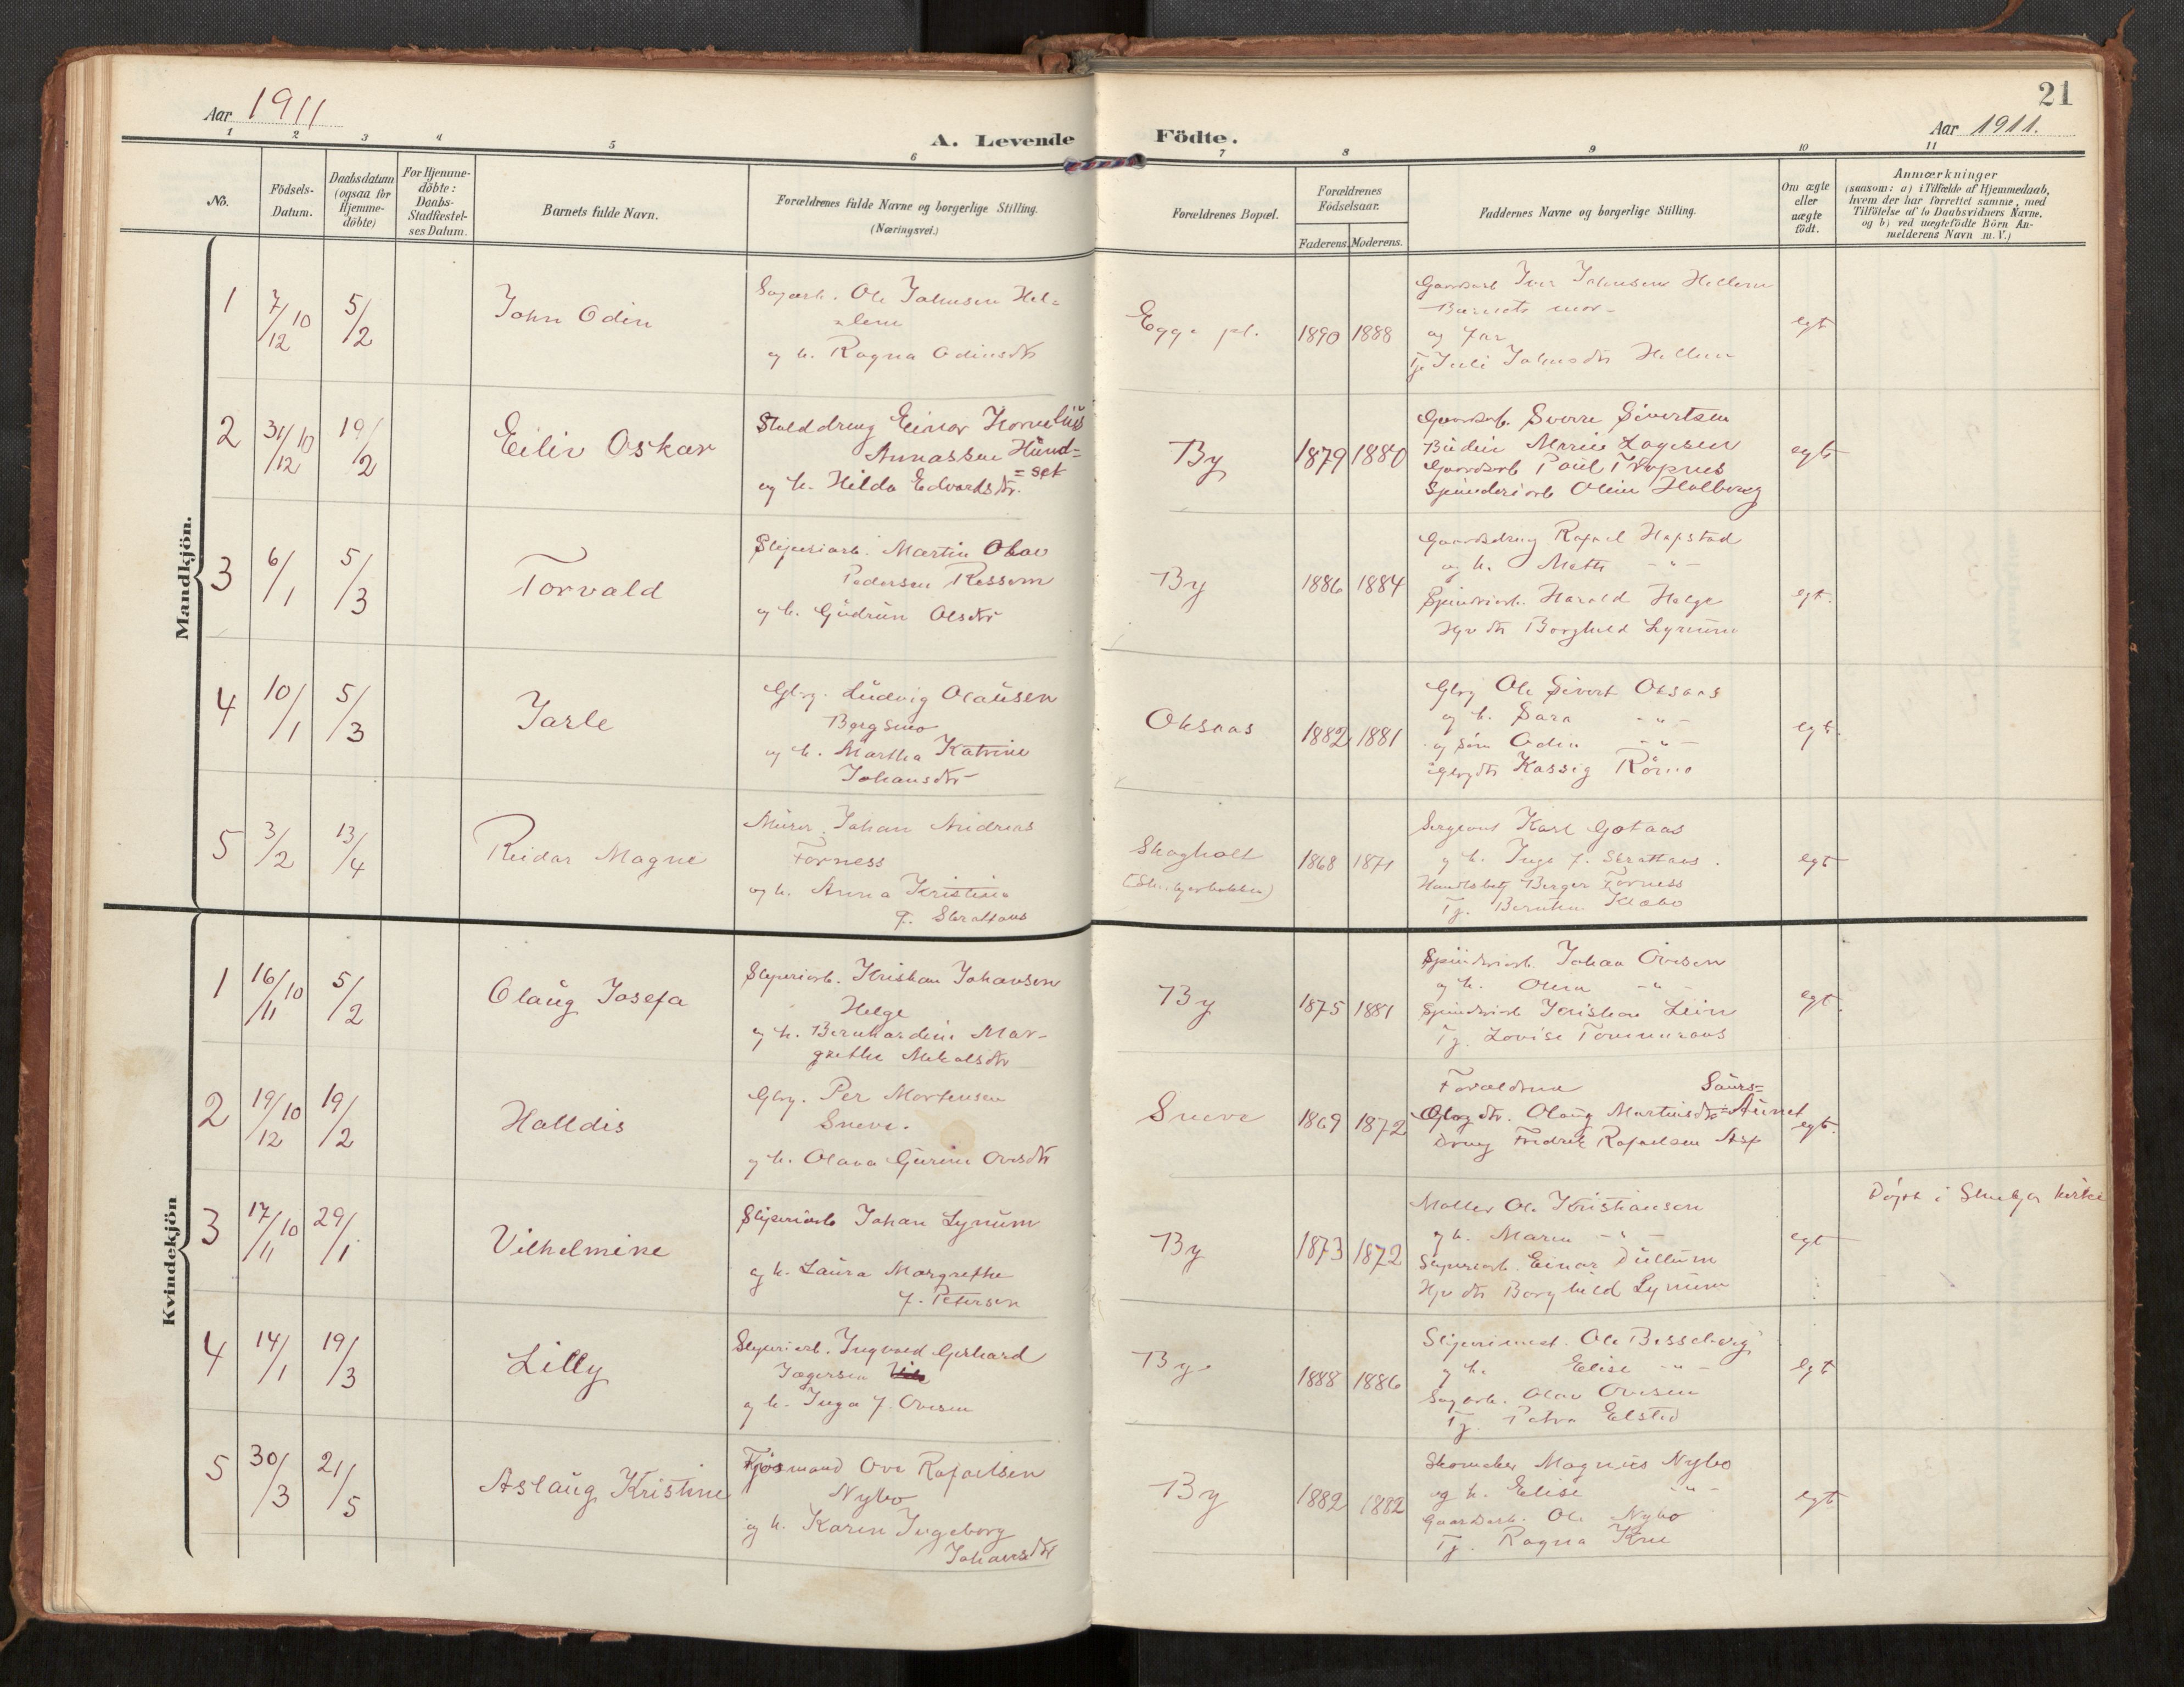 Aar 1911
A. Levende Födte.
Aar 1911.
21
1 2 3 4 5 6 7 8 9 10 11
No.
Födsels-
Datum.
Daabsdatum
(ogsaa for
Hjemme-
döbte)
For Hjemme-
döbte:
Daabs-
Stadfæstel-
ses Datum.
Barnets fulde Navn.
Forældrenes fulde Navne og borgerlige Stilling.
(Næringsvei.)
Forældrenes Bopæl.
Forældrenes
Födselsaar.
Faderens. Moderens.
Faddernes Navne og borgerlige Stilling.
Om ægte
eller
uægte
födt.
Anmærkninger
(saasom: a) i Tilfælde af Hjemmedaab,
hvem der har forrettet samme, med
Tilföielse af to Daabsvidners Navne,
og b) ved uægtefödte Börn An-
melderens Navn m. V.)
Mandkjön.
1
7/12 10
5/2
John Odin
Sagarb. Ole Johnsen Hel=
=lem
og h. Ragna Odinsdtr
Egge pl.
1890 1888
Gaardsarb Iver Johnsen Hellem
Barnets mor
og far
Tj. Juli Johnsdtr Hellem
egt
2
31/12 10
19/2
Eiliv Oskar
Stalddreng Einar Kornelius
Annassen Hund=
=set
og h. Hilda Edvardsdtr.
By
1879 1880
Gaardsarb. Sverre Sivertsen
Budeie Marie Lagesen
Gaardsarb Paul
Spinderiarb Oline Halberg
egt
3
6/1
5/3
Torvald
Sliperiarb. Martin Olav
Pedersen Ressem
og h. Gudrun Olsdtr
By
1886 1884
Gaardsdreng Rafael Hafstad
og h. Mette - " -
Spinderiarb. Harald Helge
Hpv dtr Borghild Lynum
egt.
4
10/1
5/3
Jarle
Gbrg. Ludvig Olausen
Bergsmo
og h. Martha Katrine
Johansdtr
Oksaas
1882 1881
Gbrg Ole Sivert Oksaas
og h. Sara - " -
og søn Odin - " -
Gbrgdtr Kassig Römo
egt.
5
3/2
13/4
Reidar Magne
Murer. Johan Andreas
Forness
og h. Anna Kristina
f. Skrattaas
Skogholt
1868 1871
Sergeant Karl Gotaas
og h. Inga f. Skrattaas.
Handlsbetj Berger Forness
Tj. Klæbo
egt
Kvindekjön
1
16/11 10
5/2
Olaug Josefa
Sliperiarb. Kristian Johansen
Helge
og h. Bernhardine Mar-
grethe Mekalsdtr
By
1875 1881
Spinderiarb. Johan Ovesen
og h. Olina - " -
Spinderiarb Kristian Lein
Tj. Lovise Tommeraas
egt.
2
19/12 10
19/2
Halldis
Gbrg. Per Mortensen
Sneve.
og h. Olava Gurine Ovesdtr
Sneve
1869 1872
Forældrene
Gbrg dtr. Olaug Martinsdtr Saurs=
=Aunet
Dreng Fredrik Rafaelsen Asp
egt.
3
17/11 10
29/1
Vilhelmine
Sliperiarb Johan Lynum
og h. Laura Margrethe
f. Petersen
By
1873 1872
Møller Ole Kristiansen
og h. Maren - " -
Sliperiarb. Einar Dullum
Hpv dtr Borghild Lynum
egt
Döpt i kirke
4
14/1
19/3
Lilly
Sliperiarb. Ingvald Gerhard
Jægersen
og h. Inga f. Ovesen
By.
1888 1886
Sliperimest. Ole Bessebergi
og h. Elise - " -
Sagarb. Olav Ovesen
Tj. Petra Elstad
egt
5
30/3
21/5
Aslaug Kristine
Fjösmand Ove Rafaelsen
Nybo
og h. Karen Ingeborg
Johansdtr
By
1882 1882
Skomaker Magnus Nybo
og h. Elise - " -
Gaardsarb. Ole Nybo
Tj. Ragna
egt